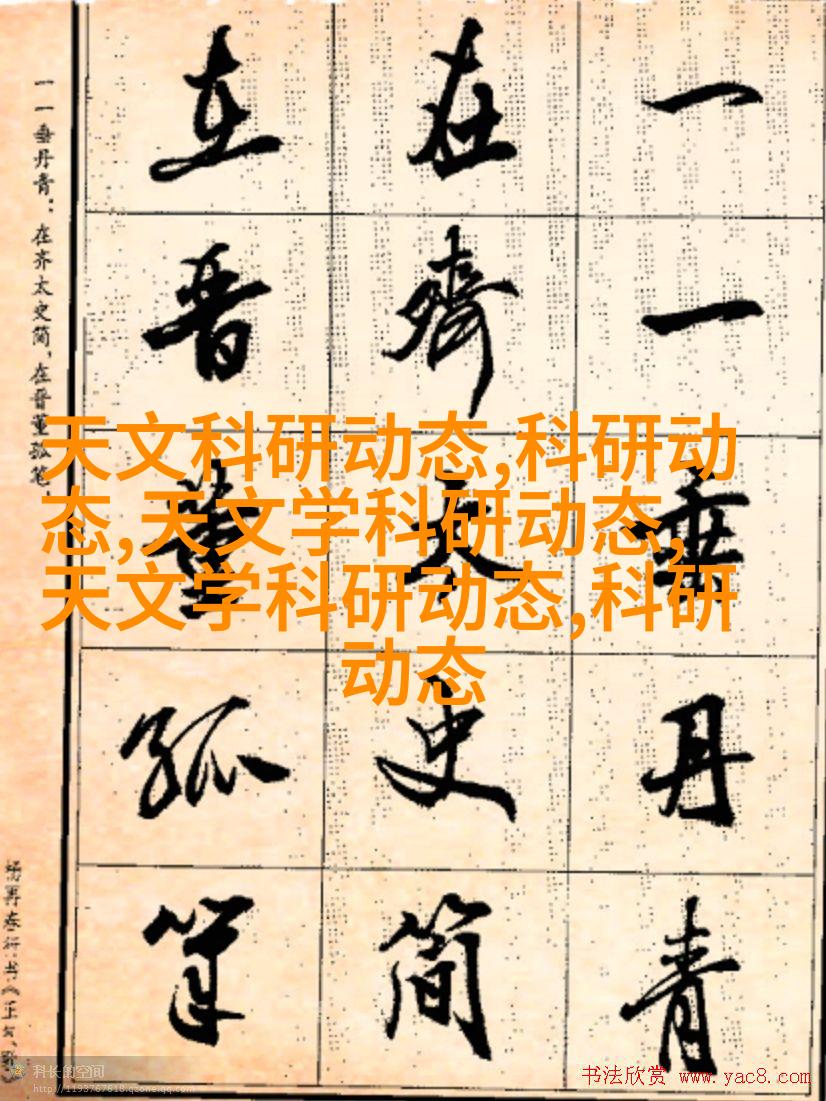 一一垂丹青
在齐太史简
在晋董狐笔
一一垂丹青：在齐太史简，在晋董狐笔，
天文科研动态,科研动
态,天文学科研动态,
天文学科研动态,科研
动态
科长的空间
http://1193767618.qzone.qq.com
书法欣赏 www.yac8.com